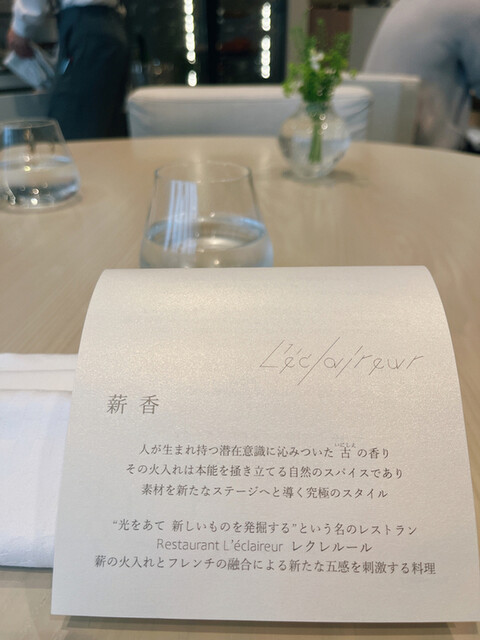 L'éclaireur
薪香
人が生まれ持つ潜在意識に沁みついた古の香り
いにしえ
その火入れは本能を掻き立てる自然のスパイスであり
素材を新たなステージへと導く究極のスタイル
“光をあて 新しいものを発掘する”という名のレストラン
Restaurant L'éclaireur レクレルール
薪の火入れとフレンチの融合による新たな五感を刺激する料理